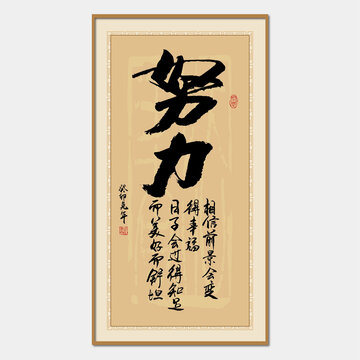 努力
相信前景会变
得幸福
日子会过得知足
而美好而舒坦
癸卯年